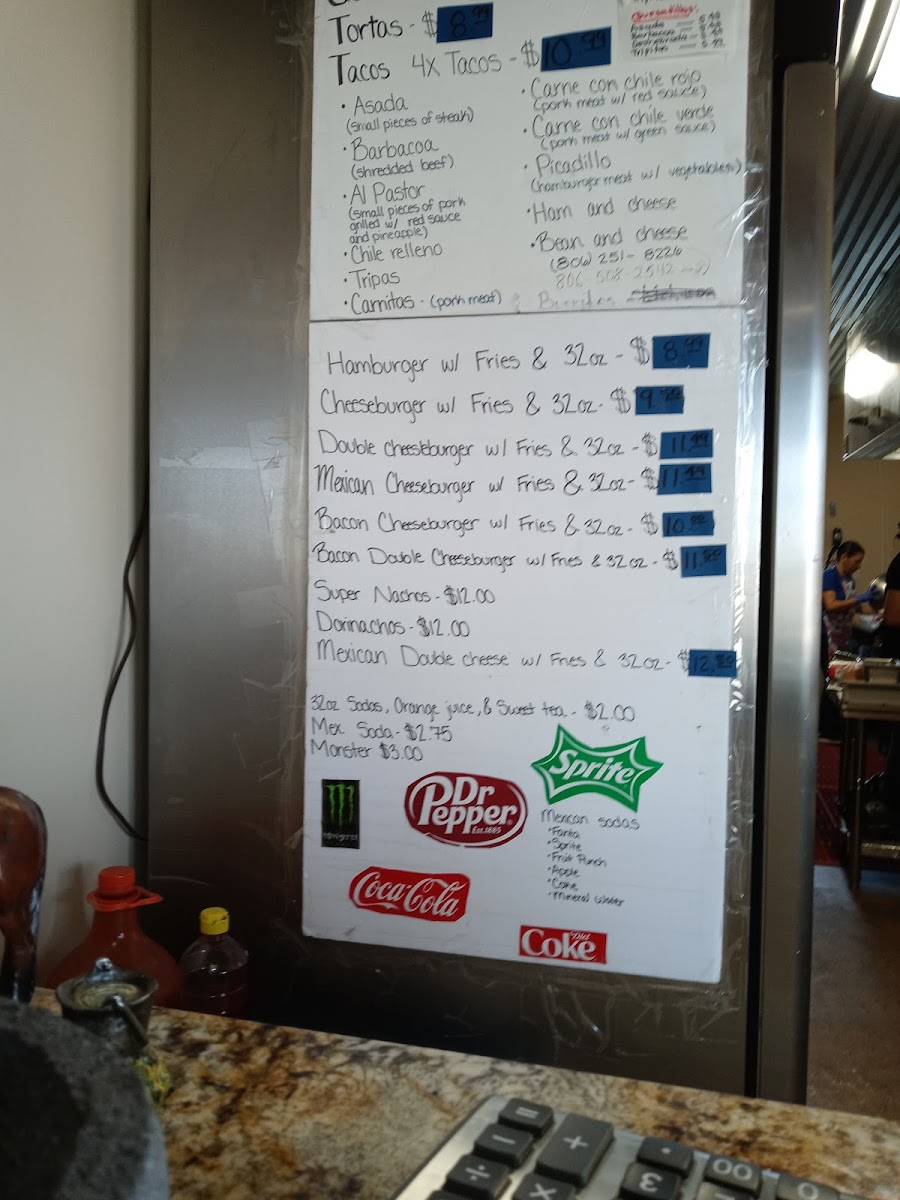 Tortas - $ 8.99
Tacos 4x Tacos - $ 10.99
• Asada
(small pieces of steak)
• Barbacoa
(shredded beef)
• Al Pastor
(small pieces of pork
grilled w/ red sauce
and pineapple)
• Chile relleno
• Tripas
• Carnitas - (pork meat)
• Carne con chile rojo
(pork meat w/ red sauce)
• Carne con chile verde
(pork meat w/ green sauce)
• Picadillo
(hamburger meat w/ vegetables)
• Ham and cheese
• Bean and cheese
(806) 251- 8226
806-508-2542
Burritos
Hamburger w/ Fries & 32oz - $ 8.99
Cheeseburger w/ Fries & 32oz - $ 9.
Double cheeseburger w/ Fries & 32oz - $ 11.99
Mexican Cheeseburger w/ Fries & 32oz - $ 11.49
Bacon Cheeseburger w/ Fries & 32oz - $ 10.
Bacon Double Cheeseburger w/ Fries & 32oz - $ 11.
Super Nachos - $12.00
Dorinachos - $12.00
Mexican Double cheese w/ Fries & 32oz - $ 12.
32oz Sodas, Orange juice, & Sweet tea - $2.00
Mex Soda - $2.75
Monster $3.00
MONSTER
Dr
Pepper
Est. 1885
Sprite
Mexican sodas
• Fanta
• Sprite
• Fruit Punch
• Apple
• Coke
• Mineral Water
Coca-Cola
Diet
Coke
=
- +
÷ × 3 . 00